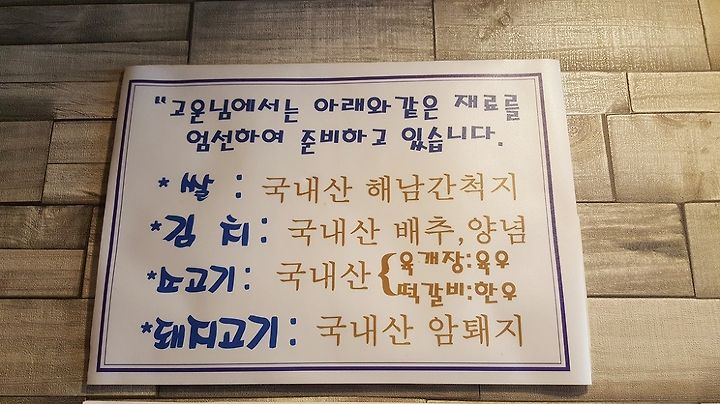 "고운님에서는 아래와같은 재료를
엄선하여 준비하고 있습니다.
*쌀 : 국내산 해남간척지
*김 치 : 국내산 배추,양념
*쇠고기 : 국내산 { 육개장:육우
떡갈비:한우
*돼지고기 : 국내산 암퇘지